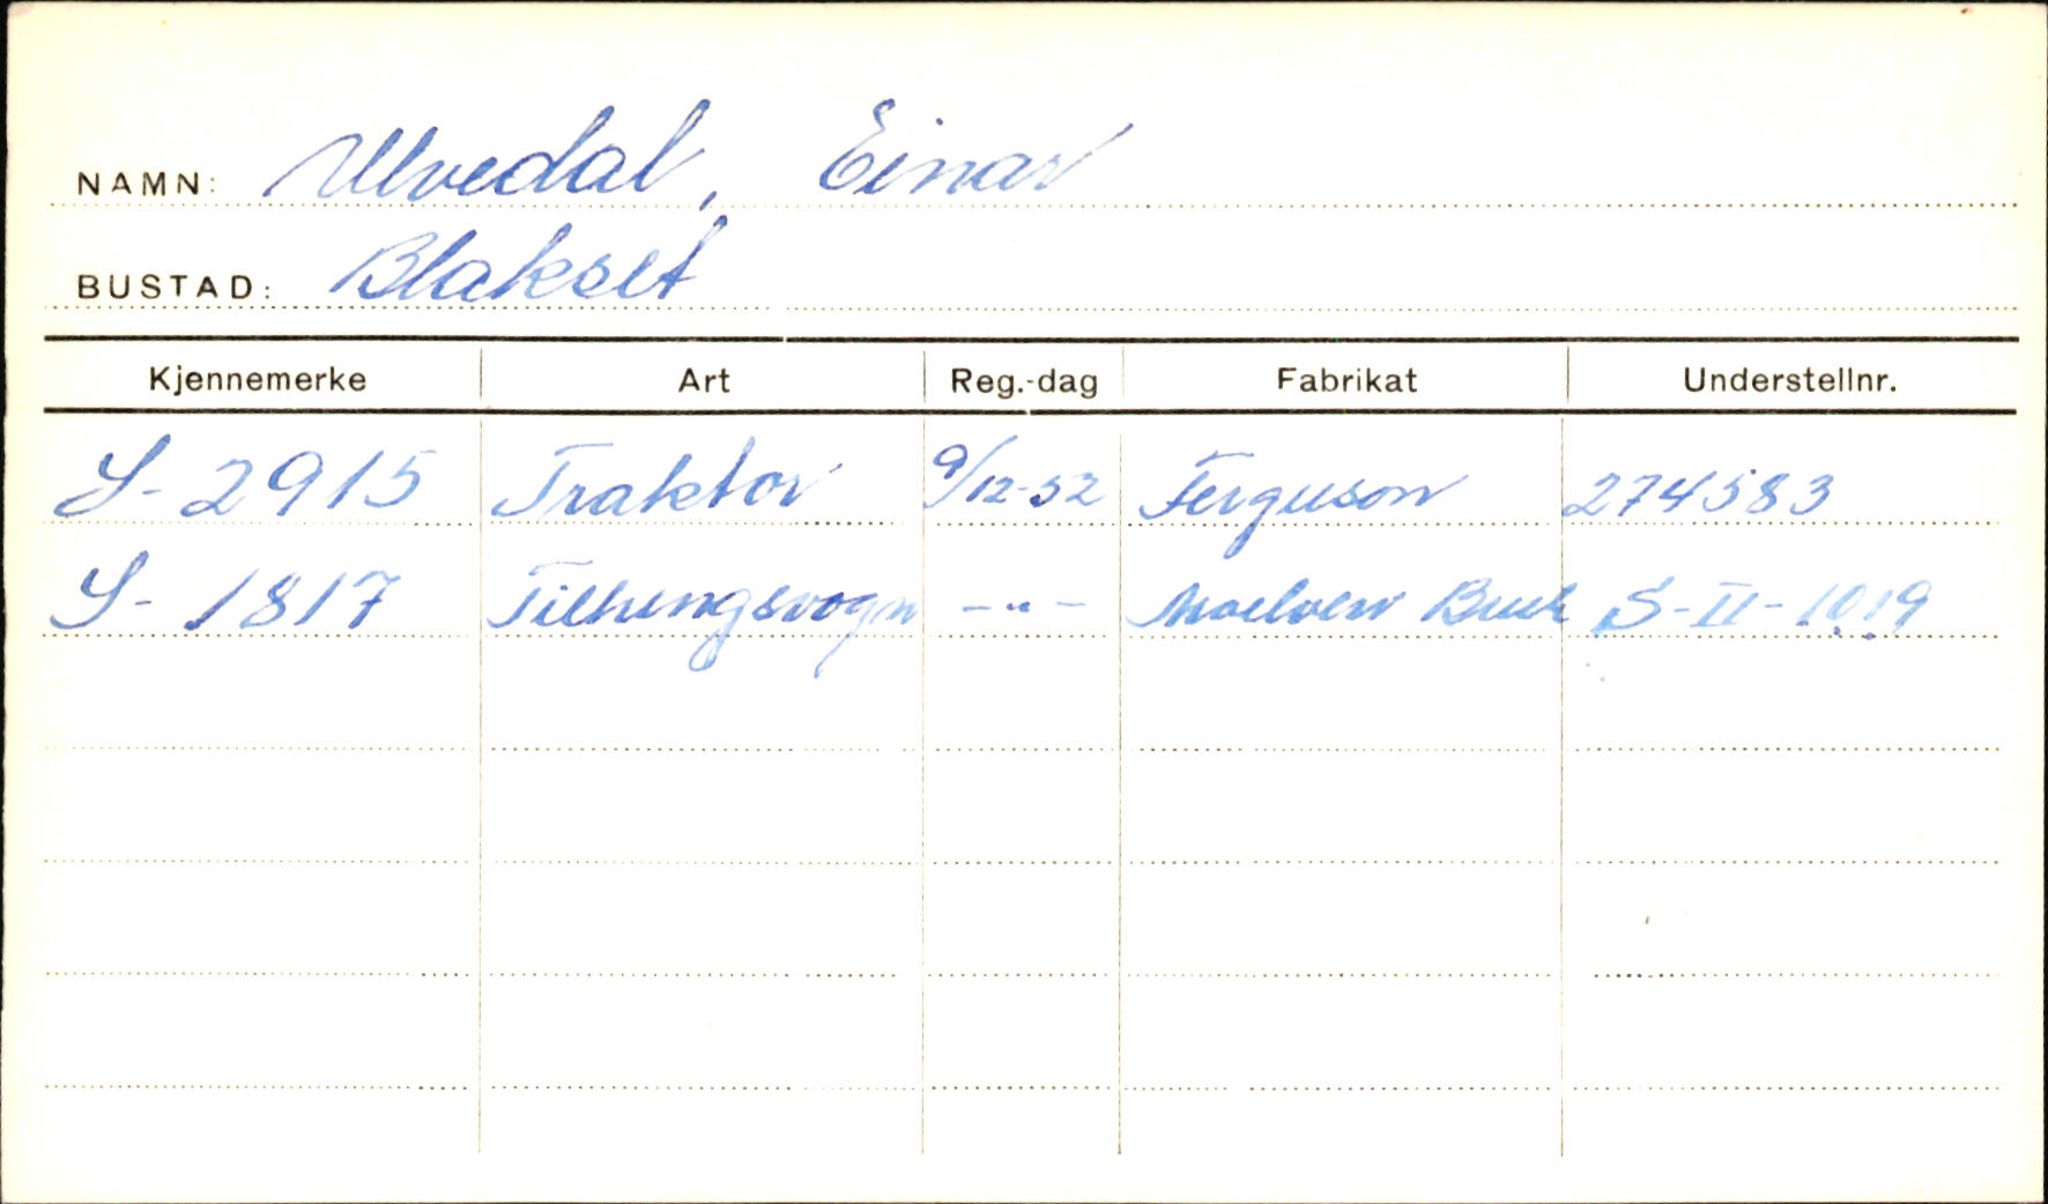 NAMN: Ulvedal, Einar
BUSTAD: Blakset
Kjennemerke Art Reg.-dag Fabrikat Understellnr.
S-2915 Traktor 9/12-52 Ferguson 274583
S-1817 Tilhengsvogn -"- Moelven Bruk S-II-1019